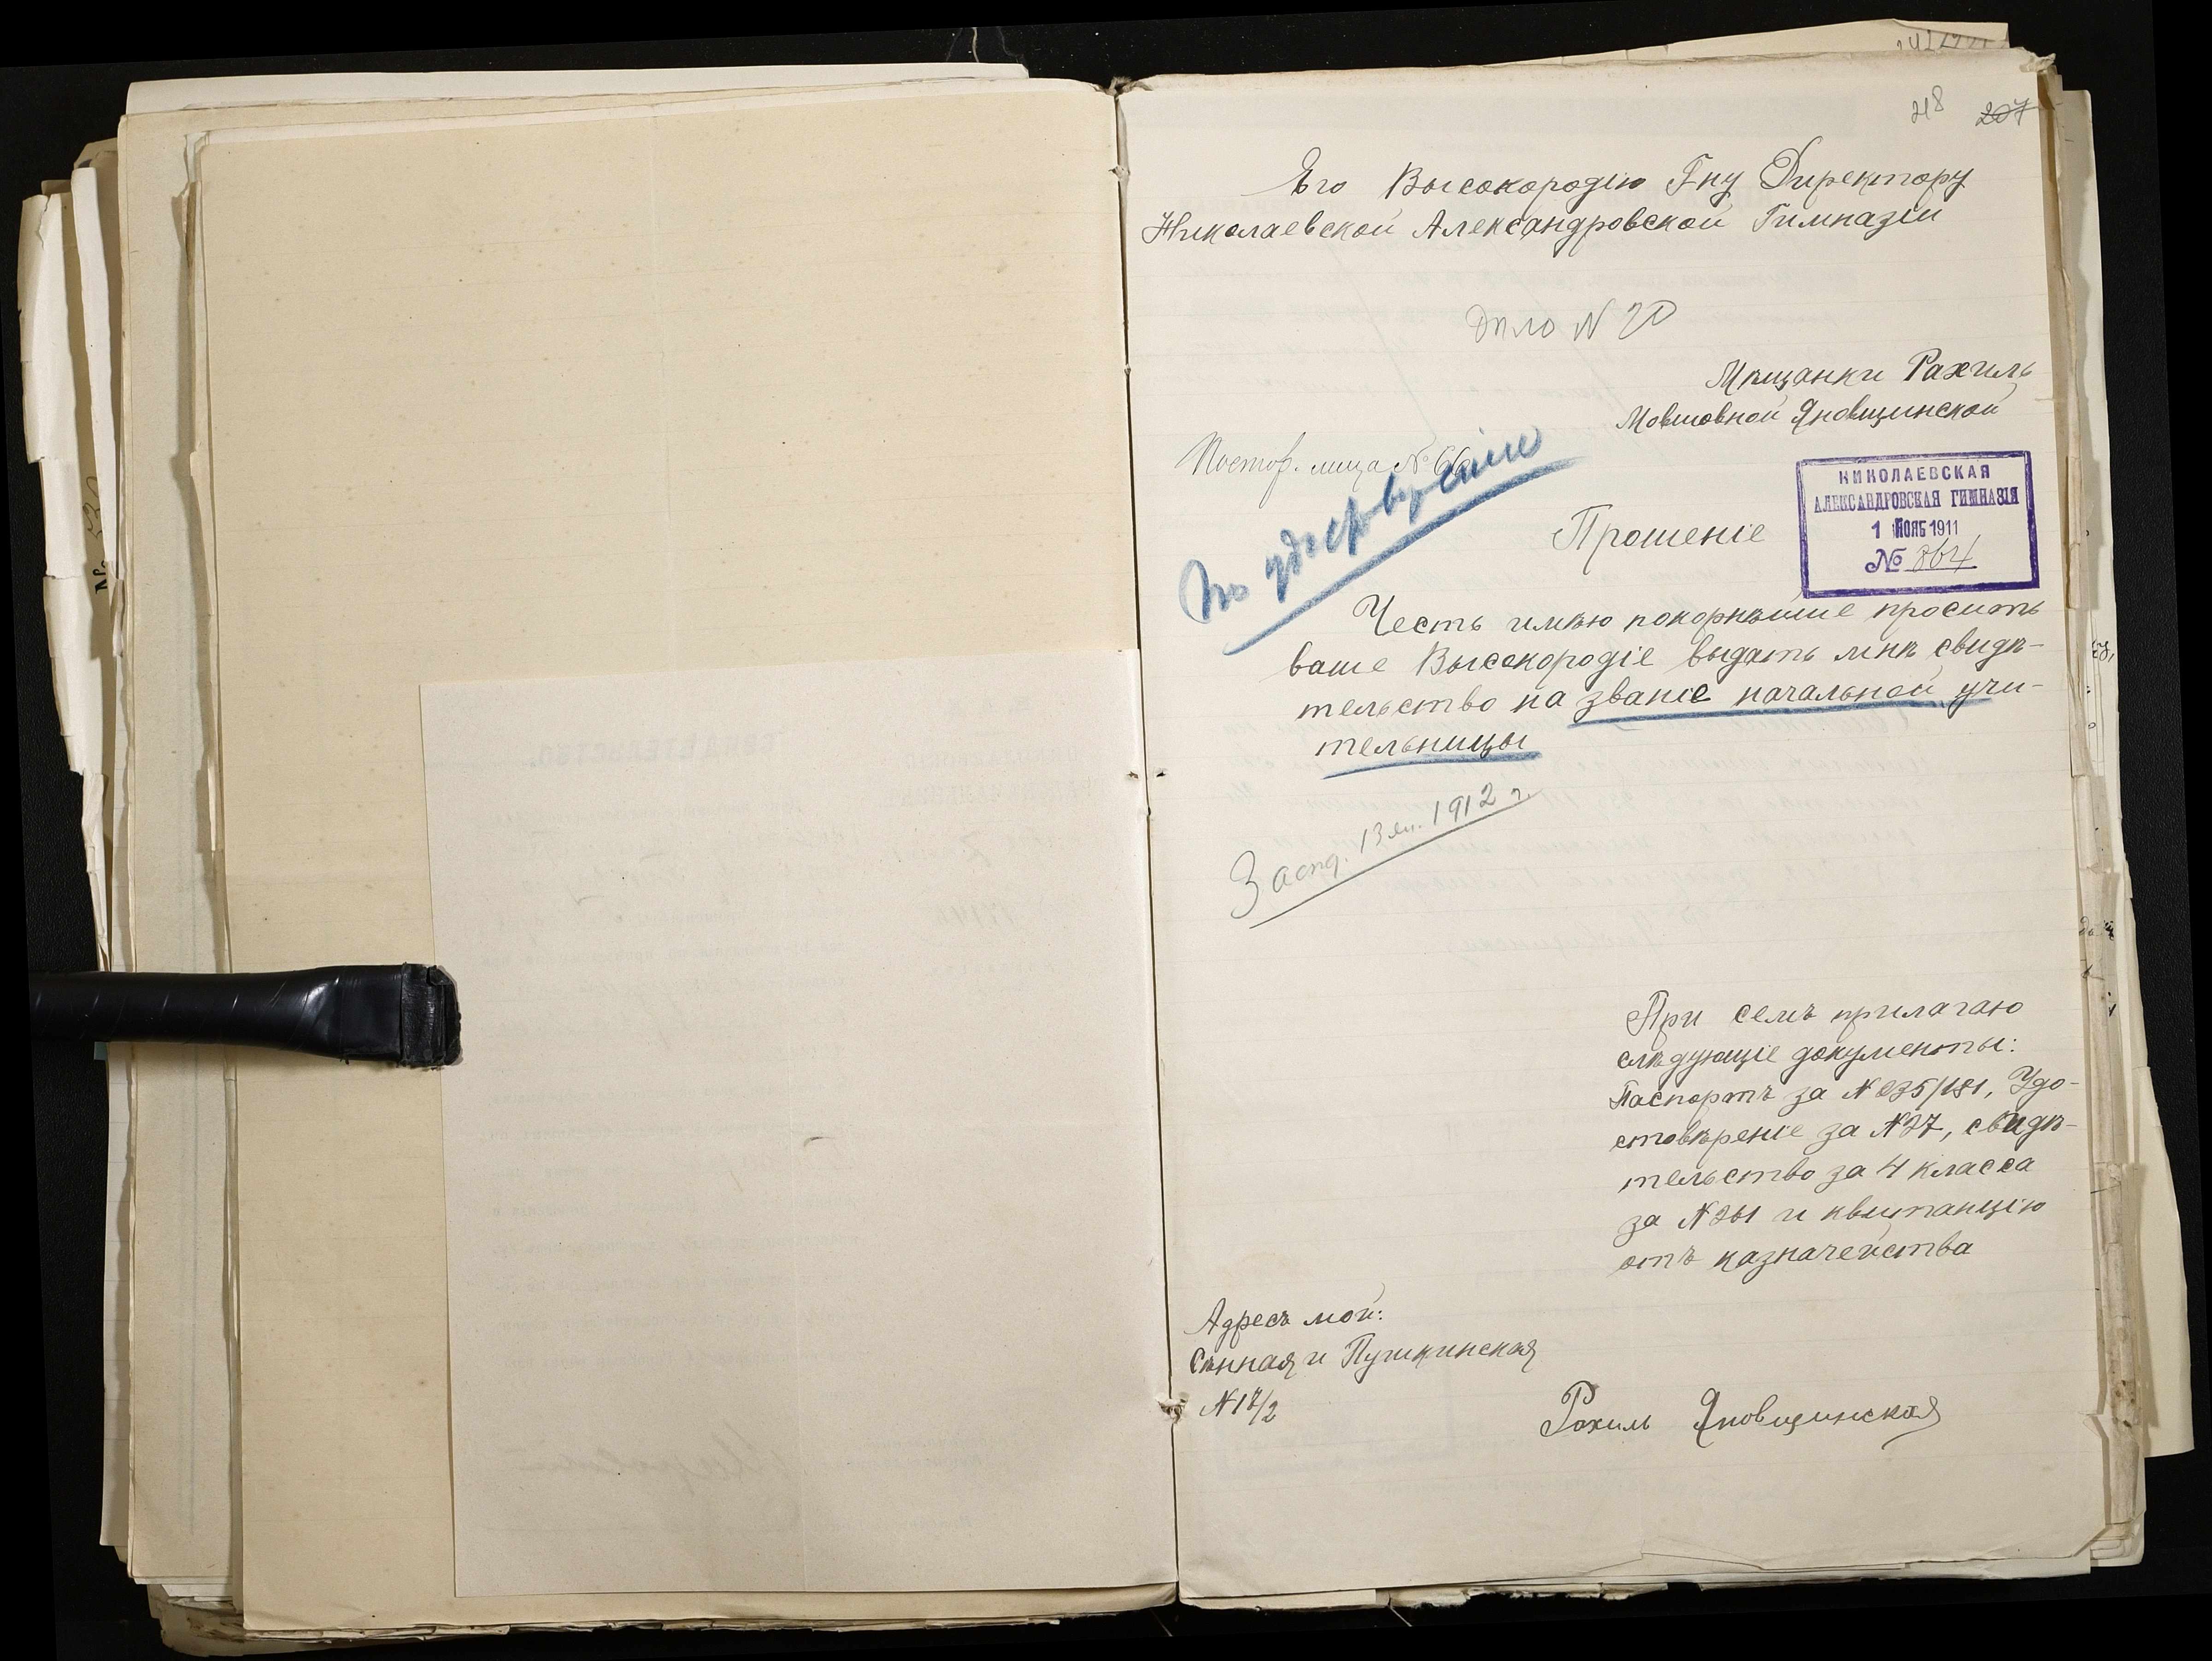 218 207
Его Высокородію Гну Директору
Николаевской Александровской Гимназіи
Дѣло N 20
Мѣщанки Рахиль
Мовшовной Яновщинской
Постор. лица № 66
НИКОЛАЕВСКАЯ
АЛЕКСАНДРОВСКАЯ ГИМНАЗІЯ
1 НОЯБ 1911
№ 864
Прошеніе
Честь имѣю покорнѣйше просить
ваше Высокородіе выдать мнѣ свидѣ-
тельство на званіе начальной учи-
тельницы
13 ян. 1912 г.
При семъ прилагаю
слѣдующіе документы:
Паспортъ за N 235/181, Удо-
стовѣреніе за N 27, свидѣ-
тельство за 4 класса
за N 261 и квитанцію
отъ казначейства
Адресъ мой:
Сѣнная и Пушкинская
N 17/2
Рахиль Яновщинская